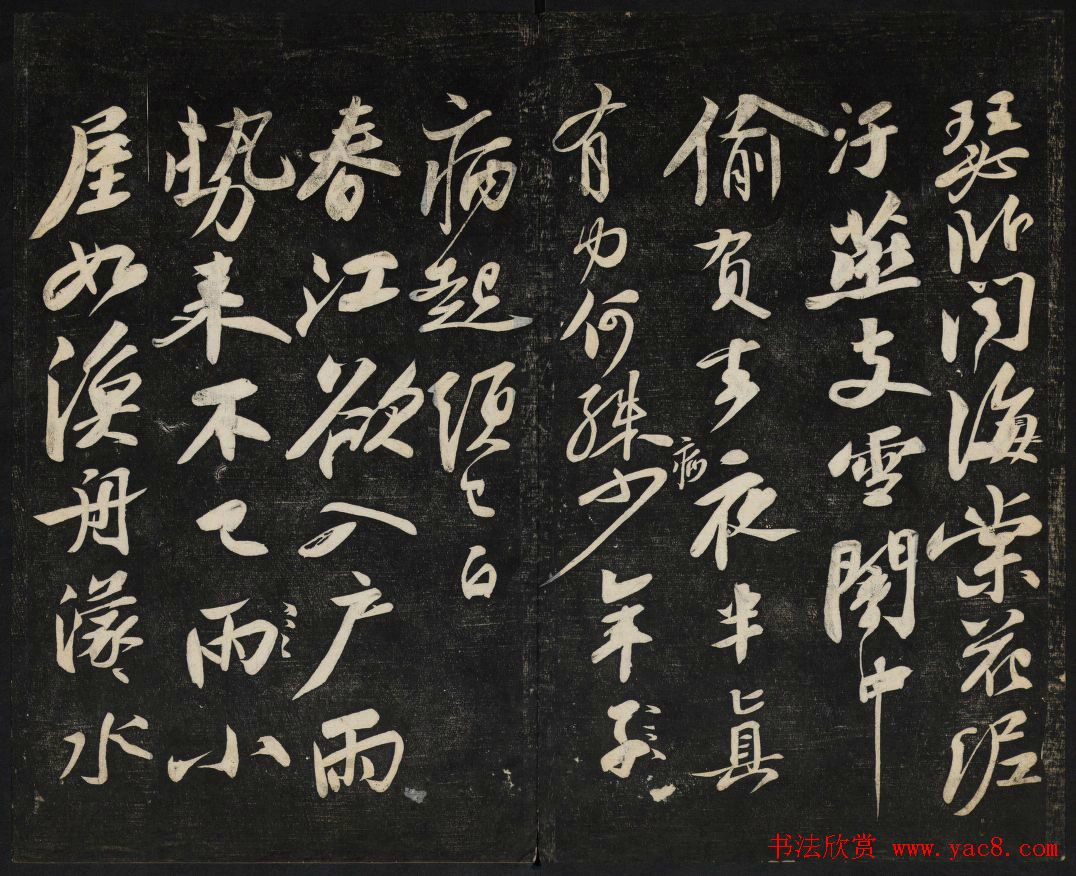 瑟臥聞海棠花泥
汙燕支雪闇中
偷負去夜半真
有力何殊病少年子
病起須已白
春江欲入戶雨
勢來不已雨小
屋如漁舟濛々水
书法欣赏 www.yac8.com